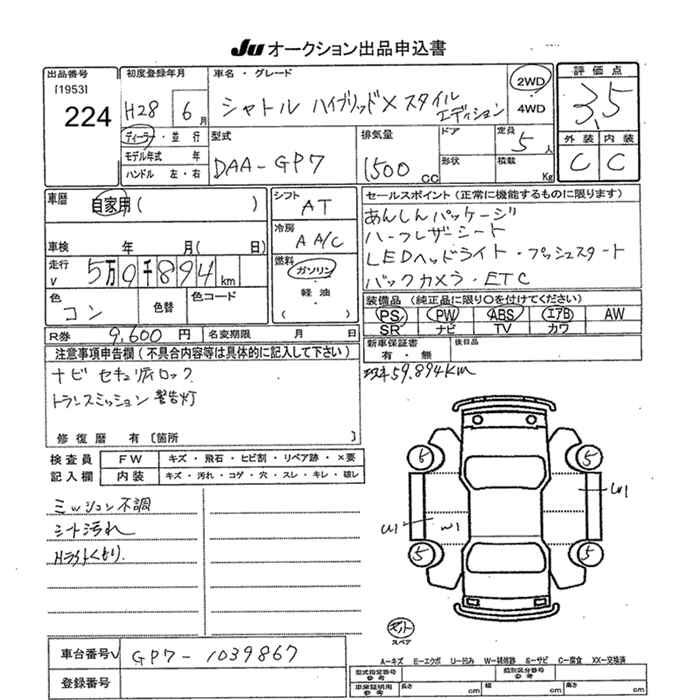 JU オークション出品申込書
出品番号
[1953]
224
初度登録年月
H28 6月
車名・グレード
シャトル ハイブリッドX スタイル
エディション
2WD
4WD
評価点
3.5
外装 内装
C C
ディーラー・並行
モデル年式 年
ハンドル 左・右
型式
DAA-GP7
排気量
1500 CC
ドア
形状
定員
5人
積載
Kg
車歴
自家用( )
車検 年 月( 日)
走行
5万0千894km
色
コン
色替
色コード
R券 9,600円
名変期限 月 日
シフト
AT
冷房
AA/C
燃料
ガソリン
・
軽油
・
( )
セールスポイント (正常に機能するものに限ります)
あんしんパッケージ
ハーフレザーシート
LEDヘッドライト・プッシュスタート
バックカメラ・ETC
装備品 (純正品に限り○を付けてください)
PS PW ABS エアB AW
SR ナビ TV カワ
新車保証書
有・無
後日品
注意事項申告欄(不具合内容等は具体的に記入して下さい)
ナビ セキュリティロック
トランスミッション警告灯
修復歴 有〔箇所 〕
59,894km
検査員
記入欄
FW キズ・飛石・ヒビ割・リペア跡・×要
内装 キズ・汚れ・コゲ・穴・スレ・キレ・破レ
ミッション不調
シート汚れ
Hライトくもり
5 5
U1 W1
5 5
スペア
A-キズ E-エクボ U-凹み W-補修跡 S-サビ C-腐食 XX-交換済
車台番号 GP7-1039867
登録番号
型式指定番号
参考
類別区分番号
参考
車庫証明用
参考
長さ cm 幅 cm 高さ cm